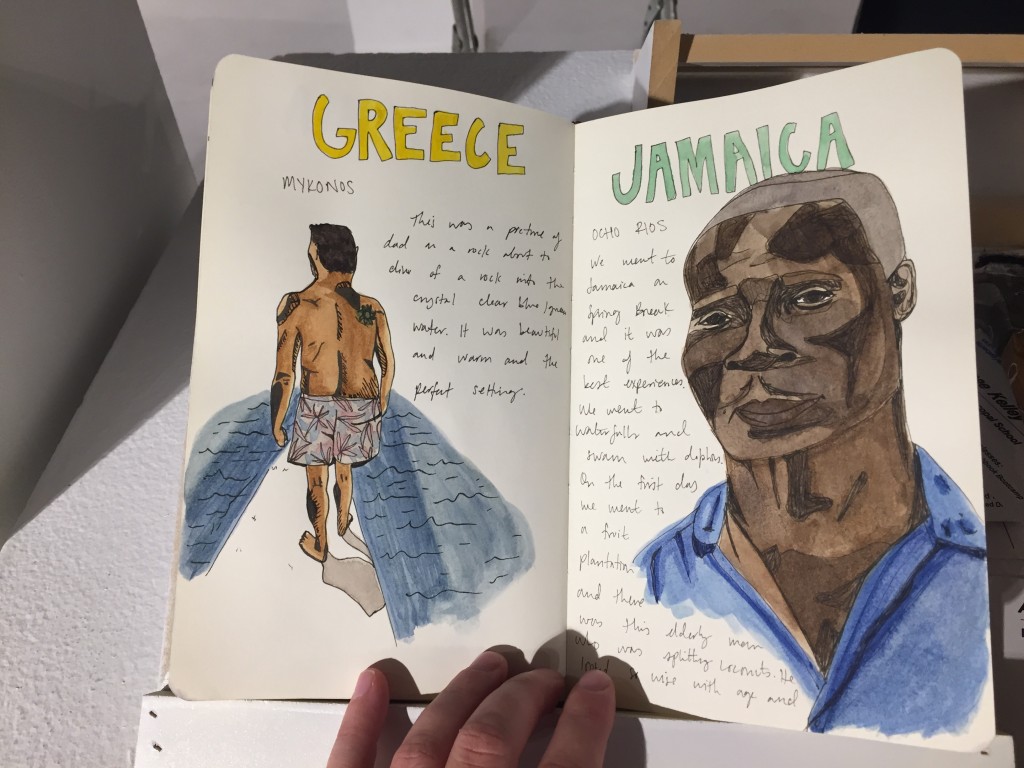 GREECE
MYKONOS
This was a picture of
dad on a rock about to
dive of a rock into the
crystal clear blue/green
water. It was beautiful
and warm and the
perfect setting.
JAMAICA
OCHO RIOS
We went to
Jamaica on
Spring Break
and it was
one of the
best experiences.
We went to
waterfalls and
swam with dolphins.
On the first day
we went to
a fruit
plantation
and there
was this elderly man
who was splitting coconuts. He
wise with age and
Kelly
School